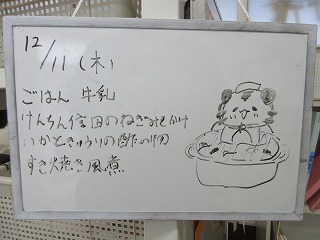 12/11(木)
ごはん 牛乳
けんちん信田のねぎみそかけ
いかときゅうりの酢の物
すき焼き風煮